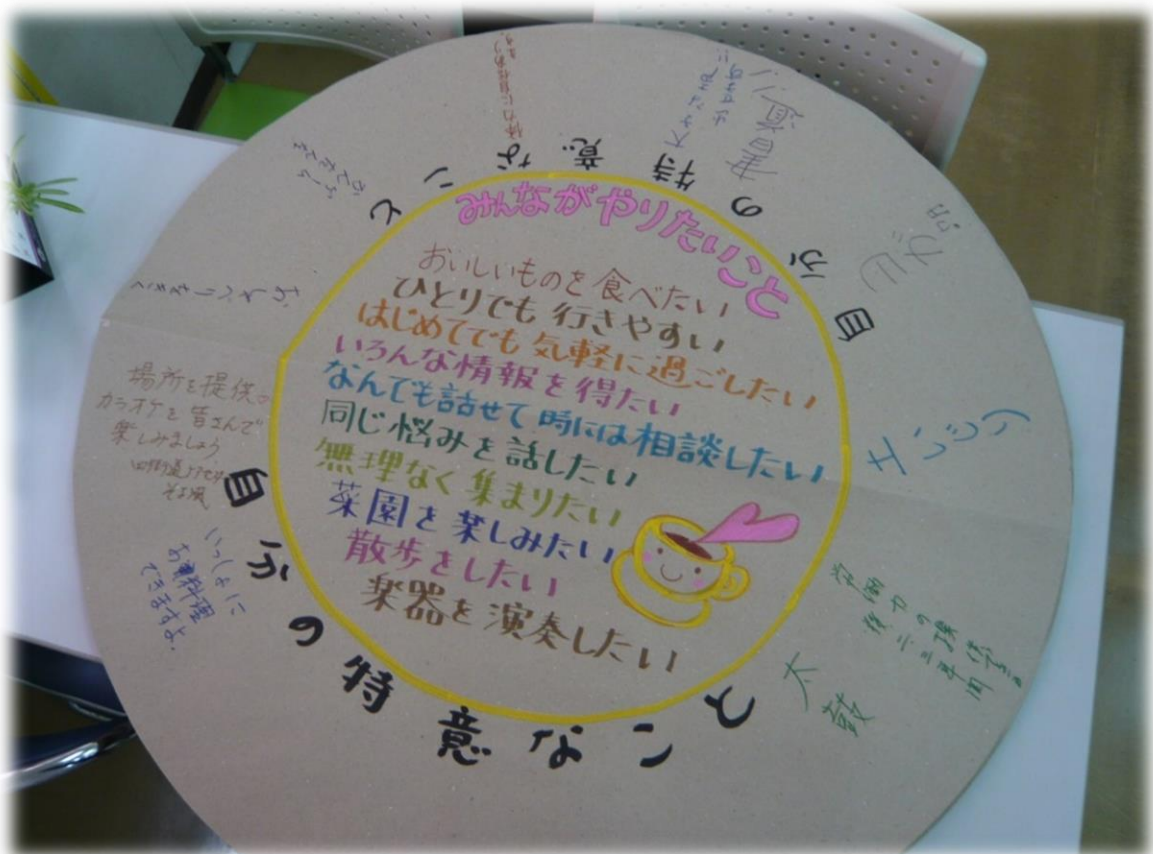 みんながやりたいこと
おいしいものを食べたい
ひとりでも行きやすい
はじめてでも気軽に過ごしたい
いろんな情報を得たい
なんでも話せて時には相談したい
同じ悩みを話したい
無理なく集まりたい
菜園を楽しみたい
散歩をしたい
楽器を演奏したい
自分の特意なこと
自分の特意なこと
体力に自信あり
場所を提供
カラオケを皆さんで
楽しみましょう
いっしょに
お料理
できますよ。
太鼓
労働力の提供
後二三年間